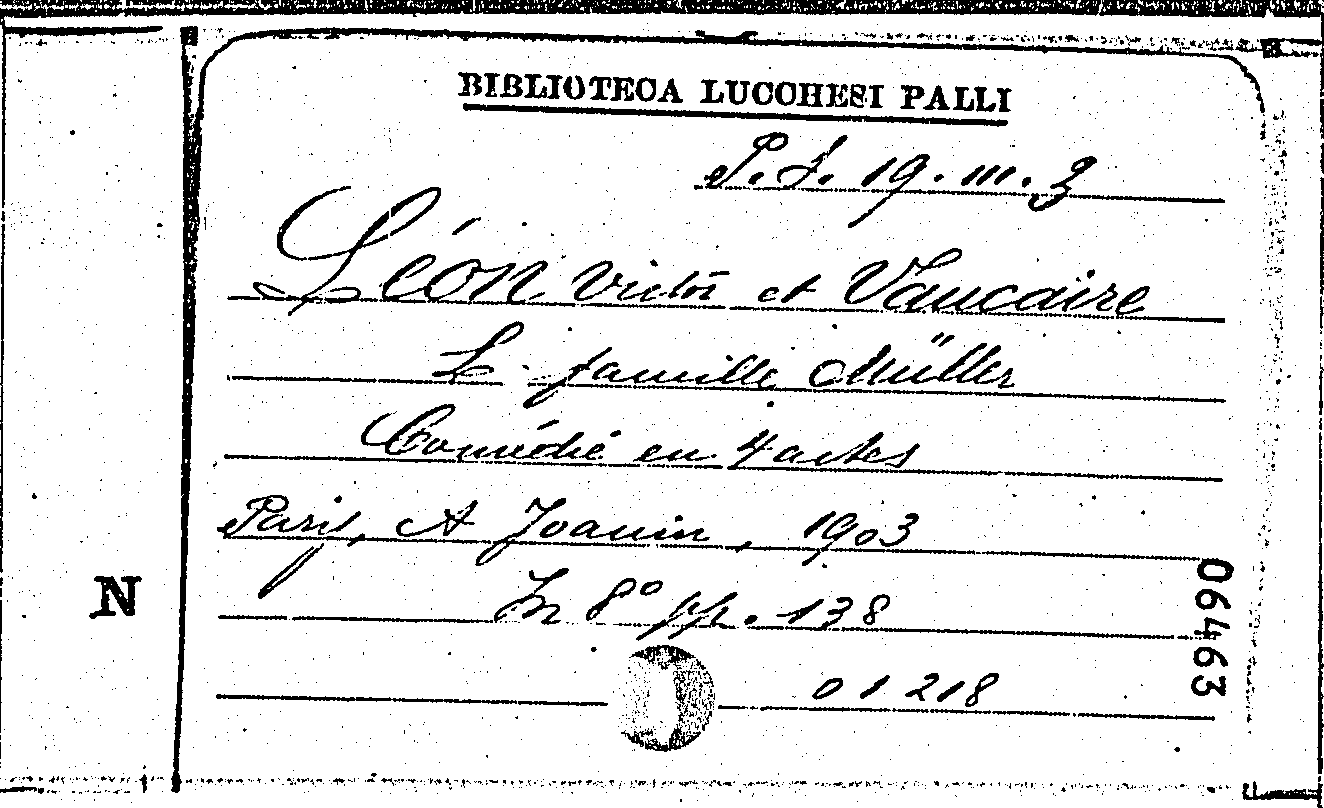 BIBLIOTECA LUCCHESI PALLI
P. S. 19. III. 3
Léon Victor et Vaucaire
L. famille Müller
Comédie en 4 actes
Paris, A Joanin, 1903
In 8° pp. 138
01218
N
06463